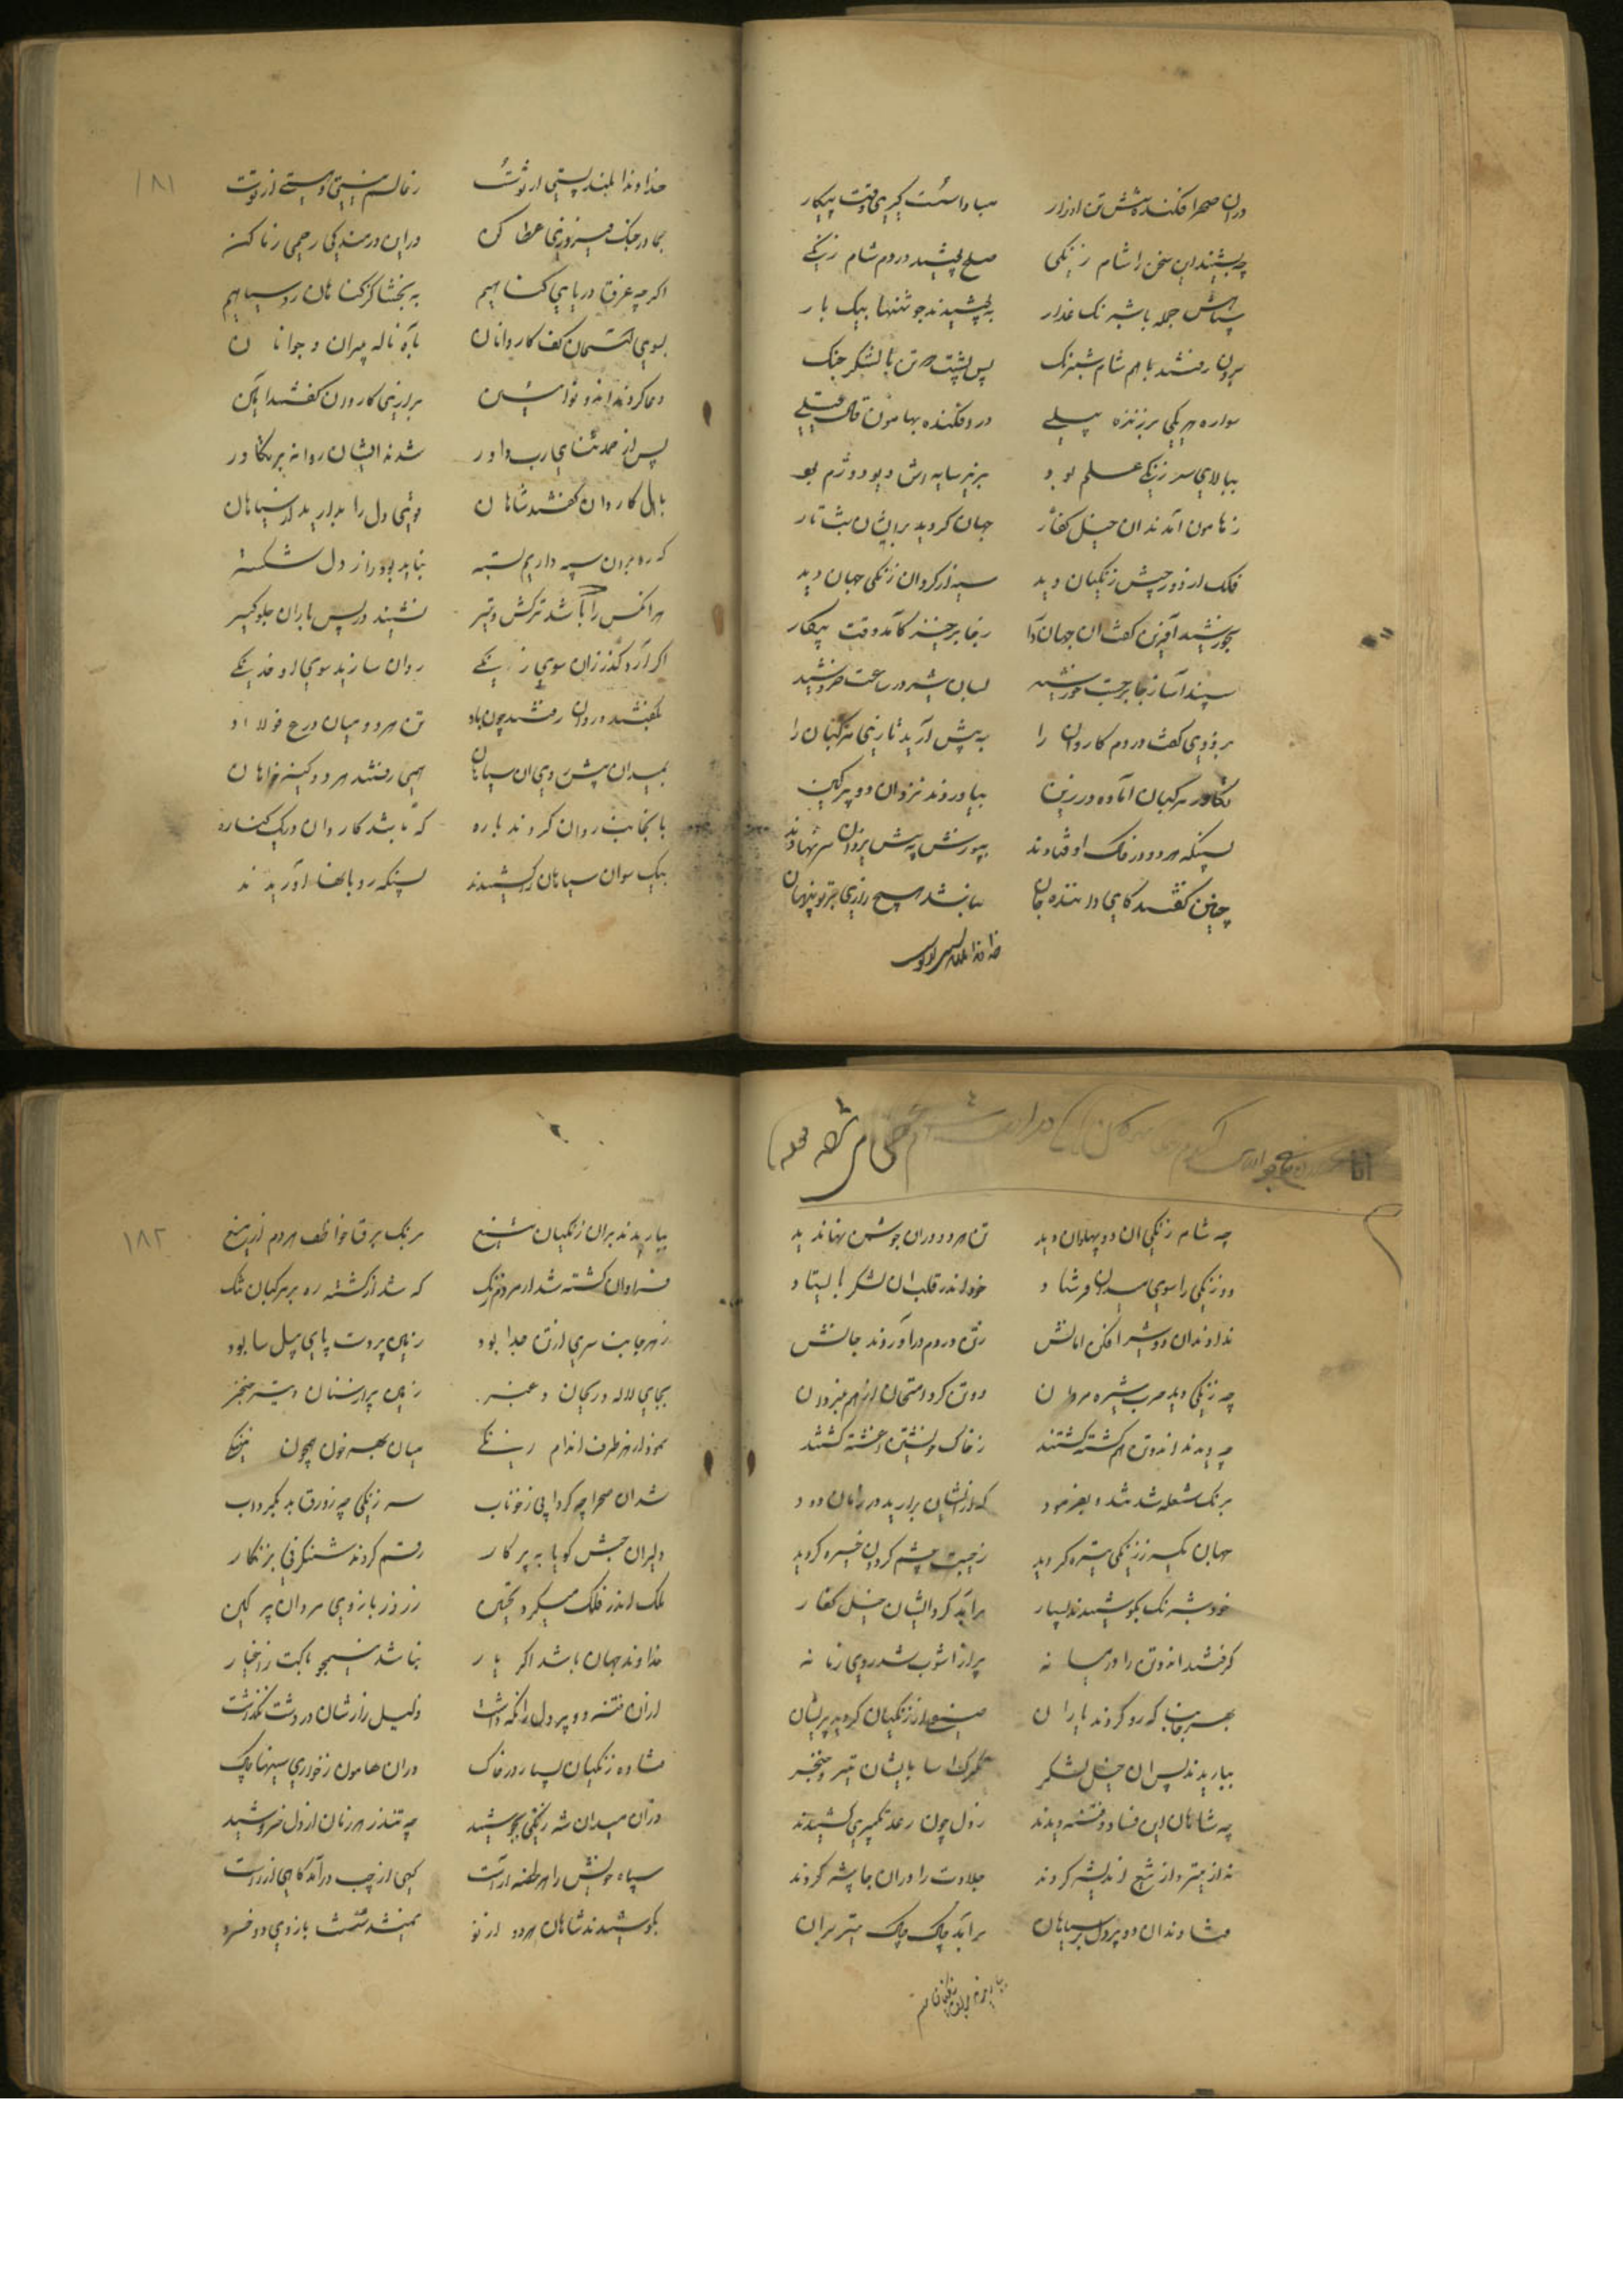 دران صحرا فکنده شش تن اوزار مبادا سست گیری وقت پیکار
چه بشنید این سخن را شام زنگی صلح پوشید در دم شام زنگی
سپاهش جمله با شبرنک غدار بپوشیدند جوشنها بیک بار
برون رفتند با هم شام شبرنک پس پشت تن با لشکر جنک
سواره هر یکی بر زنده پیلی در افکنده بهامون قال قیلی
ببالای سر زنگی علم بود بزیر سایه اش دیو دژم بود
ز هامون آمدند ان خیل کفار جهان گردید بر ایشان شب تار
فلک از دور جیش زنگیان دید سیه از گرد ان زنگی جهان دید
بخورشید آفرین گفت ان جهان دار ز جا برخیز کامد وقت پیکار
سپند آسا ز جا برجست خورشید بسان شیر در ساعت خروشید
بزودی گفت در دم کاروان را به پیش آرید تازی مرکبان را
تکاور مرکبان آماده در زین بیاوردند نزد ان دو پرکین
بسینه هر دو در خاک اوفتادند بپوزش پیش یزدان سر نهادند
چنین گفتند کای دارنده جان نباشد هیچ رازی بر تو پنهان
خداوندا بلند پستی از توست
خداوندا بلند پستی از توست ز عالم نیستی و هستی از توست
بما در جنک فیروزی عطا کن درین درمندکی رحمی ز ما کن
اگرچه غرق دریای گناهیم به بخشا کز گناهان رو سیاهیم
بسوی آسمان کف کاروانان بآه ناله پیران و جوانان
دعا کردند اندو نوائین بزاری کاروان گفتند آمین
پس از حمد ثنای رب داور شدند ایشان روانه بر تکاور
باهل کاروان گفتند شاهان قوی دل را بدارید از سیاهان
که ره برون سپه داریم بسته نباید بود راز دل شکسته
هر انکس را که باشد ترکش و تیر نشیند در پس باران جلوگیر
اگر آرد گذر زان سوی زنگی روان سازید سوی او خدنگی
بگفتند و روان رفتند چون باد تن هر دو میان درع فولاد
بمیدان پیش روی ان سیاهان همی رفتند هر دو کینه خواهان
بانجانب روان کردند باره که تا شد کاروان در یک کناره
بیک سو ان سیاهان را کشیدند بسینه رو بانها آوریدند
چه شام زنگی ان دو پهلوان دید تن هر دو دران جوشن نهان دید
دو زنگی را سوی میدان فرستاد خود اندر قلب ان لشکر باستاد
ندادند ان دو شیر افکن امانش ز تن در دم در آوردند جانش
چه زنگی دید حرب شیره مردان دو تن کرد امتحان از هم نبردان
چه دیدند ان دو تن هم کشته گشتند ز خاک و خون تن اغشته گشتند
برنک شعله شد تند و بفرمود که از ایشان برارید در زمان دود
جهان یکسر ز زنگی تیره گردید ز هیبت چشم گردون خیره گردید
خود شبرنک بکوشیدند بسیار برآمد گرد ایشان خیل کفار
گرفتند ان دو تن را در میانه پر از اشوب شد روی زمانه
بهر جانب که رو کردند یاران صف از زنگیان گردید پریشان
بباریدند پس ان خیل لشکر بایشان تیر و خنجر
چه شاهان این فساد و فتنه دیدند ز دل چون رعد تکبیری کشیدند
نه از تیر و از تیغ اندیشه کردند جلادت را دران جا پیشه کردند
فتادند ان دو پر دل بر سیاهان برآمد چاک چاک تیر بران
بباریدند بران زنگیان تیغ برنک برق خاطف هر دم از میغ
فراوان کشته شد از مردم زنک که شد از کشته ره بر مرکبان تنک
ز هر جانب سری از تن جدا بود زمین پر دست پای پیل سا بود
بجای لاله و ریحان و عنبر زمین پر از سنان و تیر خنجر
نمودار هر طرف اندام زنگی میان بحر خون همچون نهنگی
شد ان صحرا چه گردابی ز خوناب سر زنگی چه زورق بد بگرداب
دلیران حبش گویا به پرگار رقم کردند شنگرفی بزنگار
ملک اندر فلک میکرد تحسین ز زور بازوی مردان پر کین
خداوند جهان باشد اگر یار نباشد هیچ باکت ز اغیار
ازان فتنه دو پر دل را نگه داشت دلیل رازشان در دشت نگذاشت
فتاده زنگیان بسیار در خاک دران هامون ز خواری سینها چاک
دران میدان شه زنگی بجوشید چه تندر هر زمان از دل خروشید
سپاه خویش را هر لحظه آراست گهی از چپ درآمد گاهی از راست
بکوشیدند شاهان هر دو از نو نمیشد سست بازوی دو خسرو
۱۸۱
۱۸۲